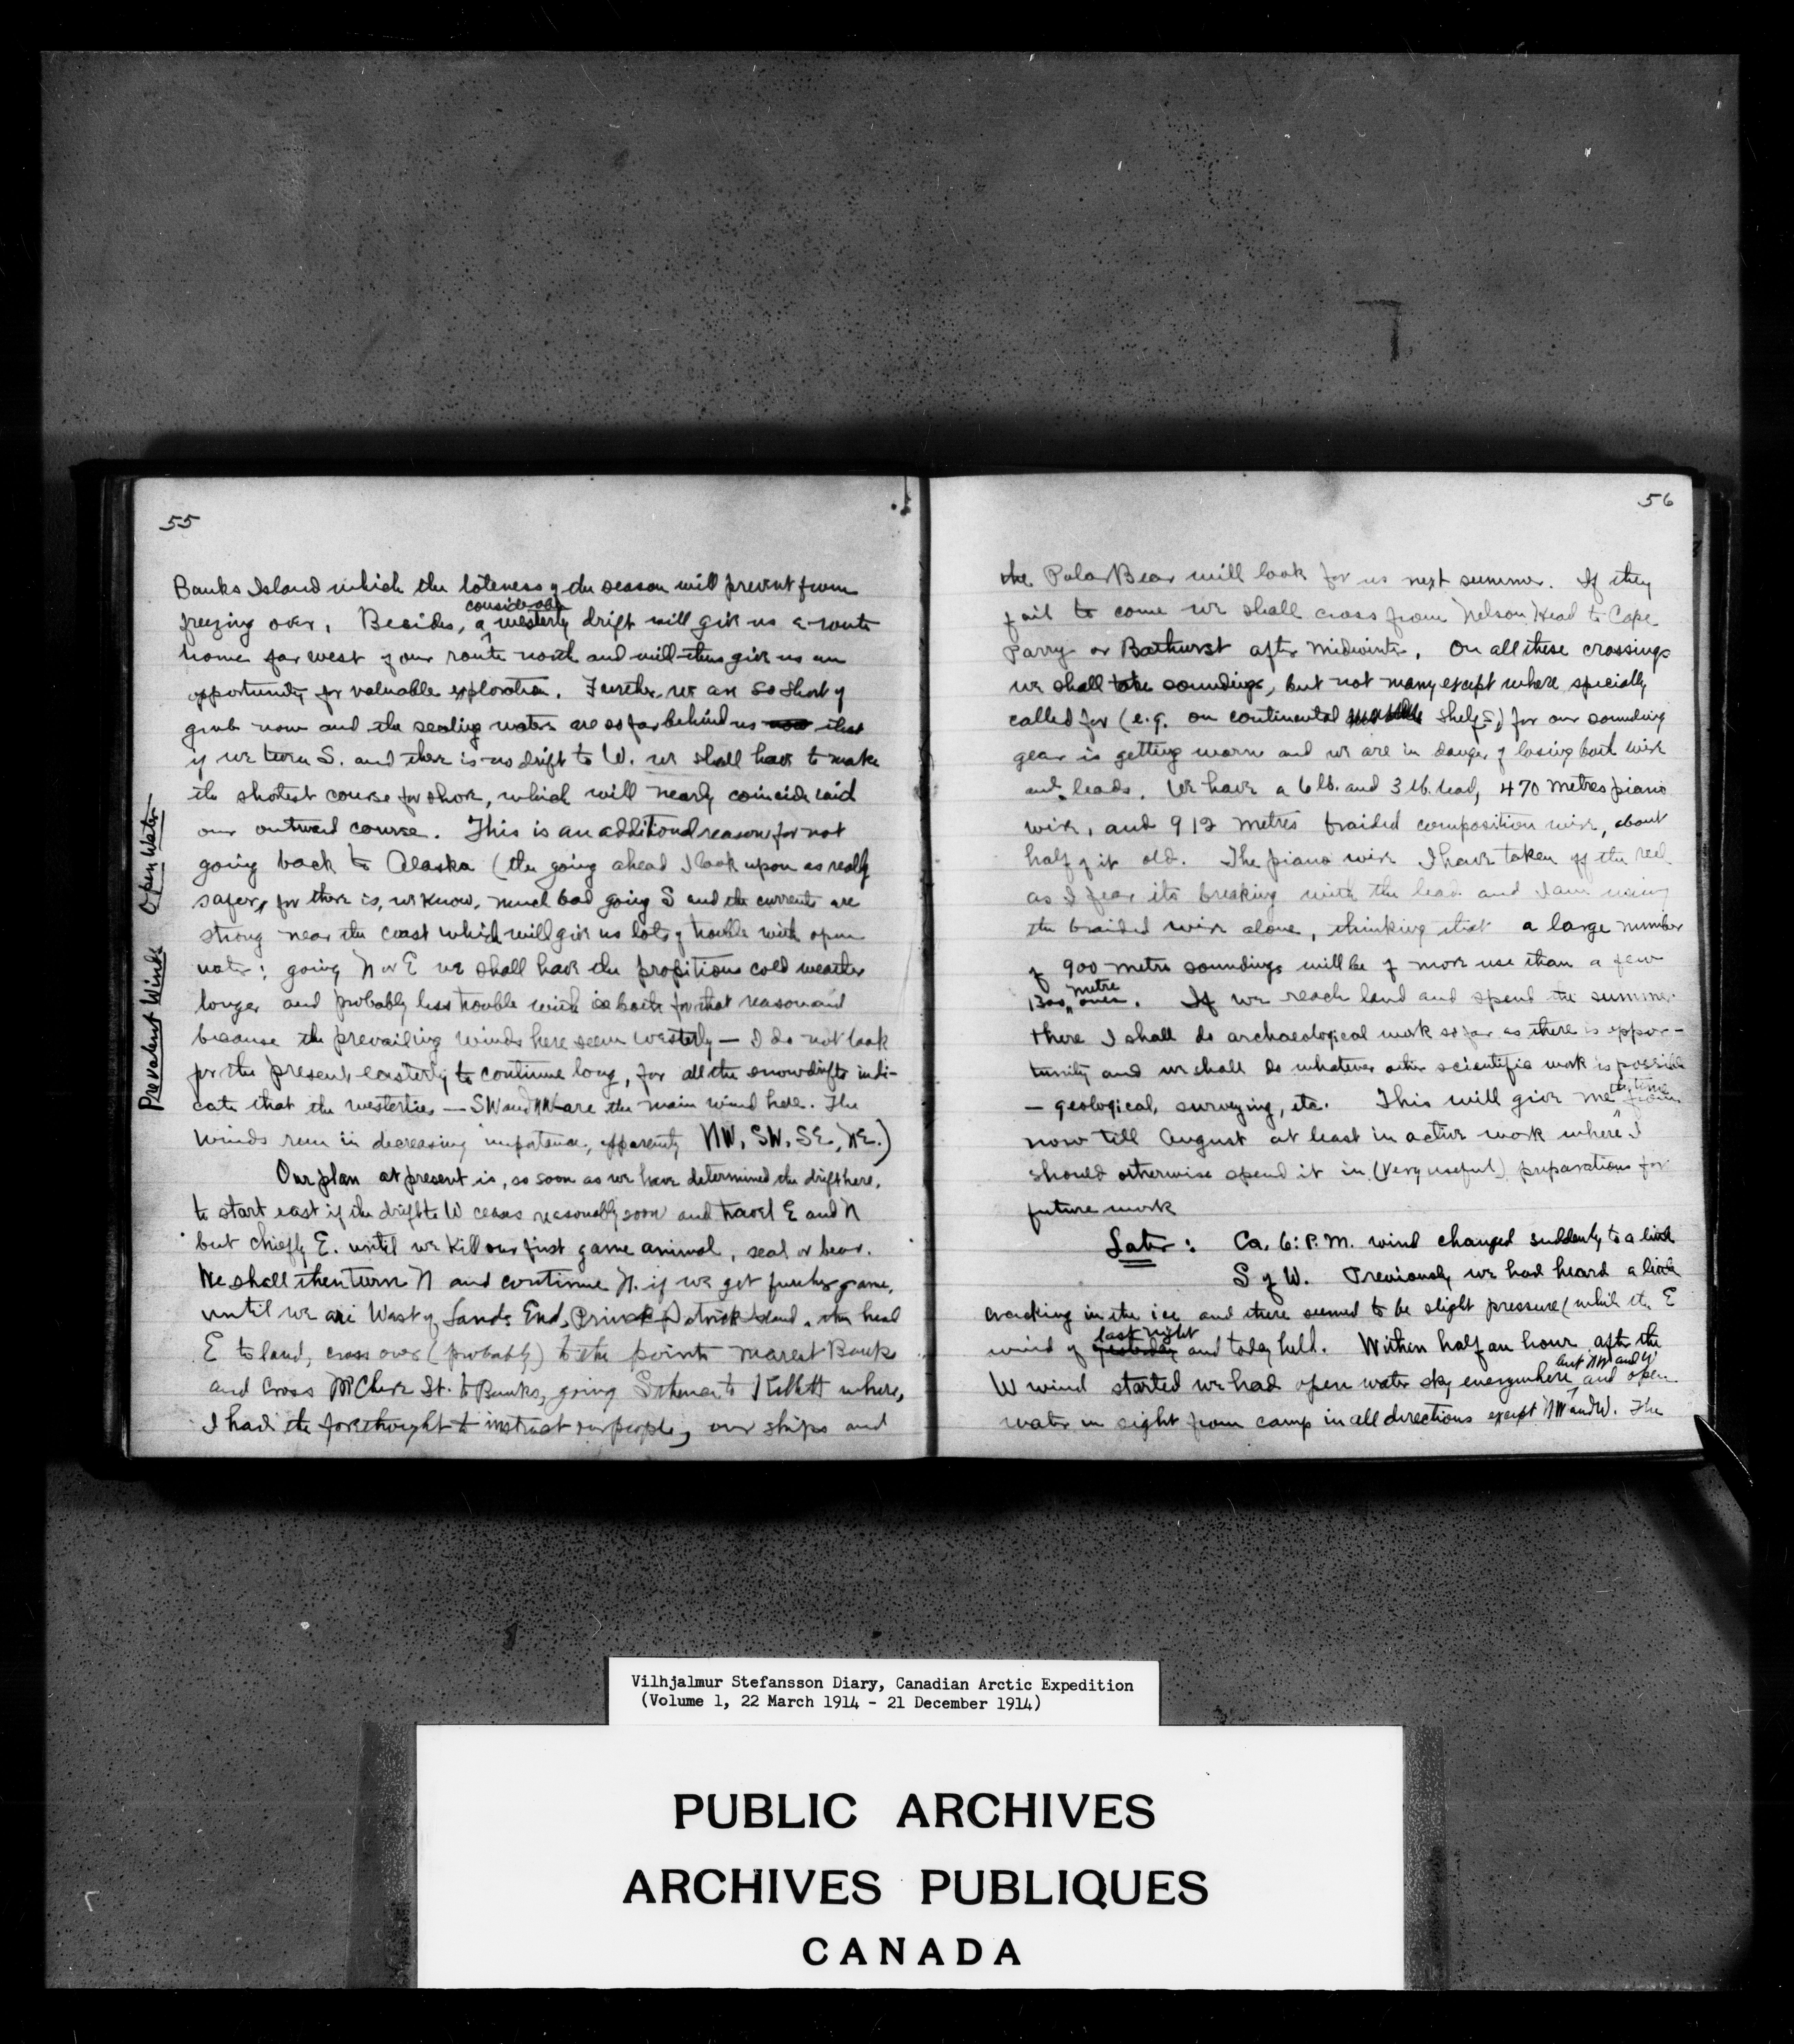 55
Banks Island which the lateness of the season will prevent from
considerable
freezing over. Besides, a westerly drift will give us a route
home far west of our route north and will thus give us an
opportunity for valuable exploration. Further, we are so short of
grub now and the sealing waters are so far behind us now that
if we turn S. and there is no drift to W. we shall have to make
the shotest course for shore, which will nearly coincide with
our outward course. This is an additional reason for not
going back to Alaska (the going ahead I look upon as really
safer, for there is, we know, much bad going S and the currents are
strong near the coast which will give us lots of trouble with open
water; going N or E we shall have the propitious cold weather
longer and probably less trouble with ice both for that reason and
because the prevailing winds here seem westerly — I do not look
for the present easterly to continue long, for all the snowdrifts indi-
cate that the westerlies — SW and NW are the main wind here. The
winds run in decreasing importance, apparently NW, SW, SE, NE.)
Our plan at present is, so soon as we have determined the drift here,
to start east if the drift to W ceases reasonably soon and travel E and N
but chiefly E. until we kill our first game animal, seal or bear.
We shall then turn N and continue N. if we get further game,
until we are West of Lands End, Prince Patrick Island, then head
E to land, cross over (probably) to the point nearest Banks
and cross McClure St. to Banks, going S thence to Kellett where,
I had the forethought to instruct our people, our ships and
Prevalent Winds Open Water
56
the Polar Bear will look for us next summer. If they
fail to come we shall cross from Nelson Head to Cape
Parry or Bathurst after midwinter. On all these crossings
we shall take soundings, but not many except where specially
called for (e.g. on continental shelf) for our sounding
gear is getting worn and we are in danger of losing both wire
and leads. We have a 6 lb. and 3 lb. lead, 470 metres piano
wire, and 912 metres braided composition wire, about
half of it old. The piano wire I have taken off the reel
as I fear its breaking with the lead and I am using
the braided wire alone, thinking that a large number
of 900 metre soundings will be of more use than a few
metre
1300 ones. If we reach land and spend the summer
there I shall do archaeological work so far as there is oppor-
tunity and we shall do whatever other scientific work is possible
the time
— geological, surveying, etc. This will give me from
now till August at least in active work where I
should otherwise spend it in (very useful) preparations for
future work
Later: Ca. 6: P.M. wind changed suddenly to a little
S of W. Previously we had heard a little
cracking in the ice and there seemed to be slight pressure (while the E
last night
wind of yesterday and today held. Within half an hour after the
but NW and W
W wind started we had open water sky everywhere and open
water in sight from camp in all directions except NW and W. The
Vilhjalmur Stefansson Diary, Canadian Arctic Expedition
(Volume 1, 22 March 1914 - 21 December 1914)
PUBLIC ARCHIVES
ARCHIVES PUBLIQUES
CANADA